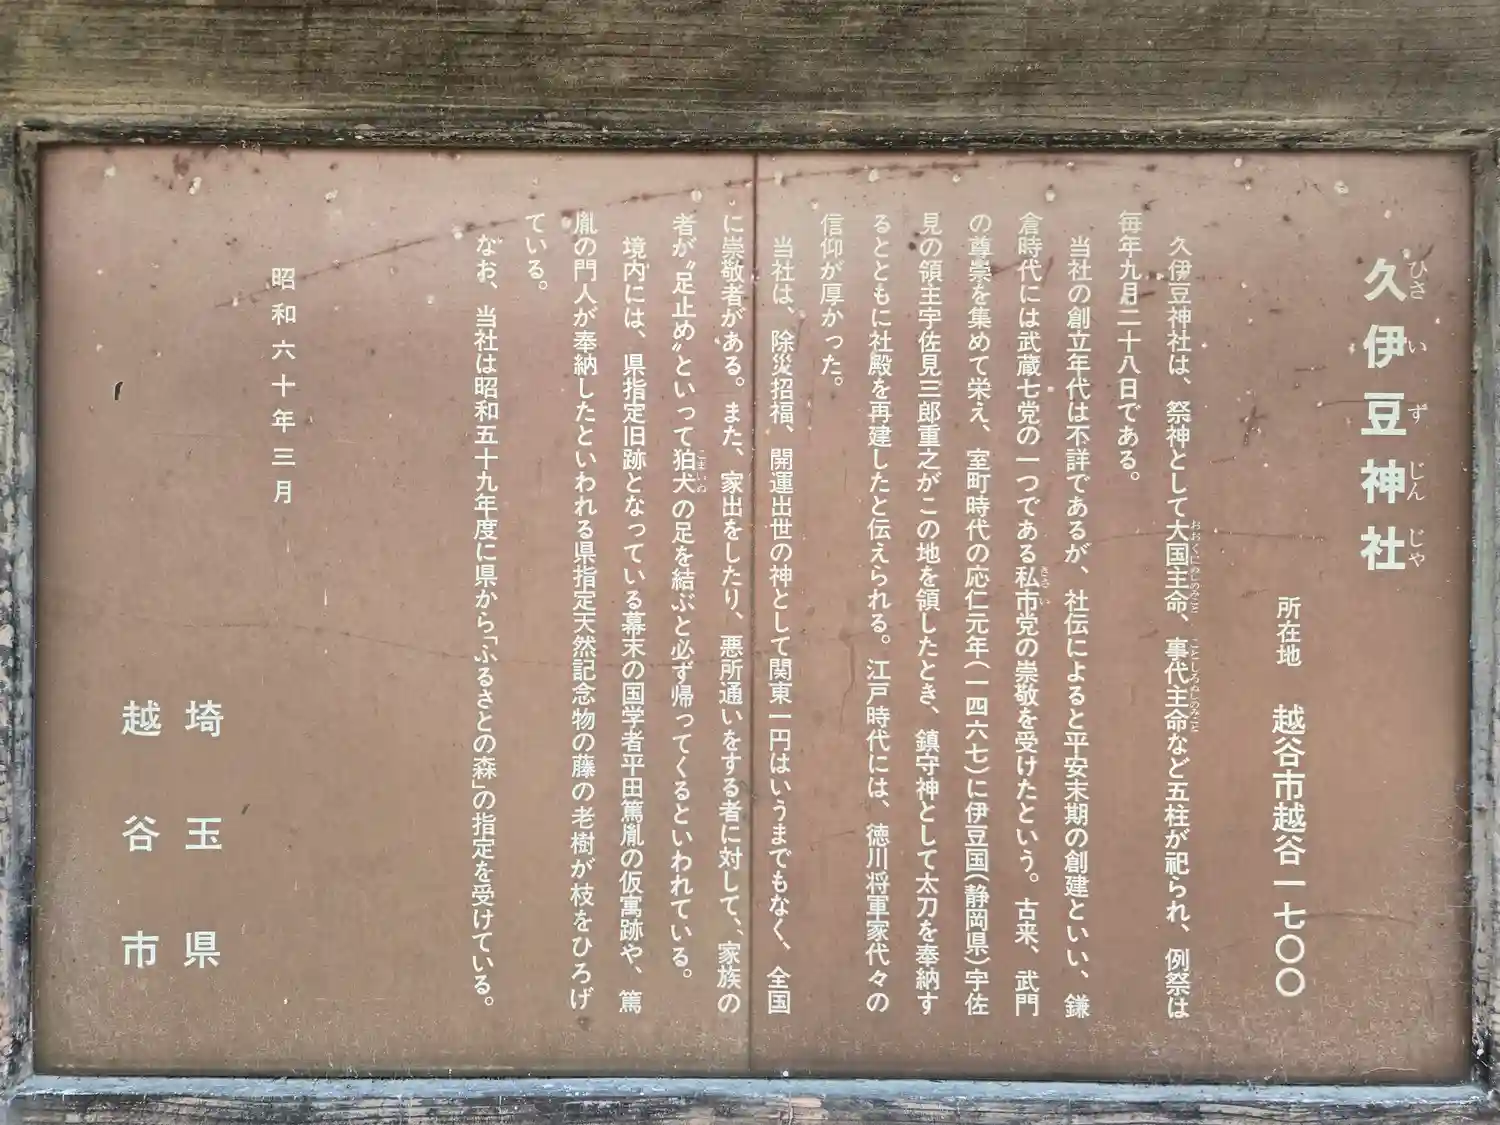 久伊豆神社
ひさいずじんじゃ
所在地　越谷市越谷一七〇〇
久伊豆神社は、祭神として大国主命、事代主命など五柱が祀られ、例祭は
おおくにぬしのみこと
ことしろぬしのみこと
毎年九月二十八日である。
当社の創立年代は不詳であるが、社伝によると平安末期の創建といい、鎌
倉時代には武蔵七党の一つである私市党の崇敬を受けたという。古来、武門
きさい
の尊崇を集めて栄え、室町時代の応仁元年(一四六七)に伊豆国(静岡県)宇佐
見の領主宇佐見三郎重之がこの地を領したとき、鎮守神として太刀を奉納す
るとともに社殿を再建したと伝えられる。江戸時代には、徳川将軍家代々の
信仰が厚かった。
当社は、除災招福、開運出世の神として関東一円はいうまでもなく、全国
に崇敬者がある。また、家出をしたり、悪所通いをする者に対して、家族の
者が〝足止め〟といって狛犬の足を結ぶと必ず帰ってくるといわれている。
こまいぬ
境内には、県指定旧跡となっている幕末の国学者平田篤胤の仮寓跡や、篤
胤の門人が奉納したといわれる県指定天然記念物の藤の老樹が枝をひろげ
ている。
なお、当社は昭和五十九年度に県から「ふるさとの森」の指定を受けている。
昭和六十年三月
埼玉県
越谷市